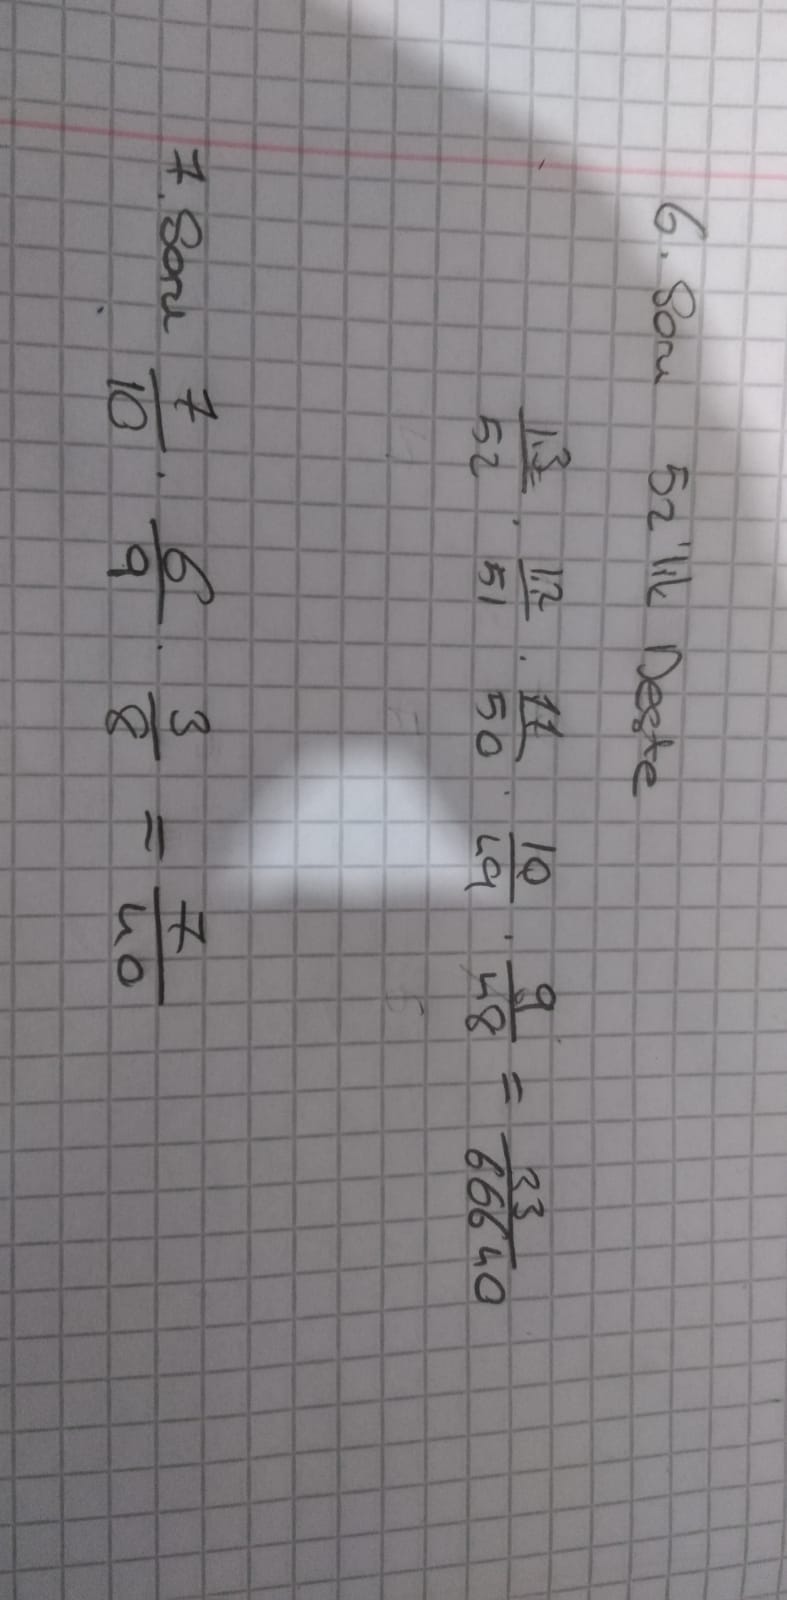 6. Soru 52'lik Deste
13/52 . 12/51 . 11/50 . 10/49 . 9/48 = 33/66640
7. Soru 7/10 . 6/9 . 3/8 = 7/40